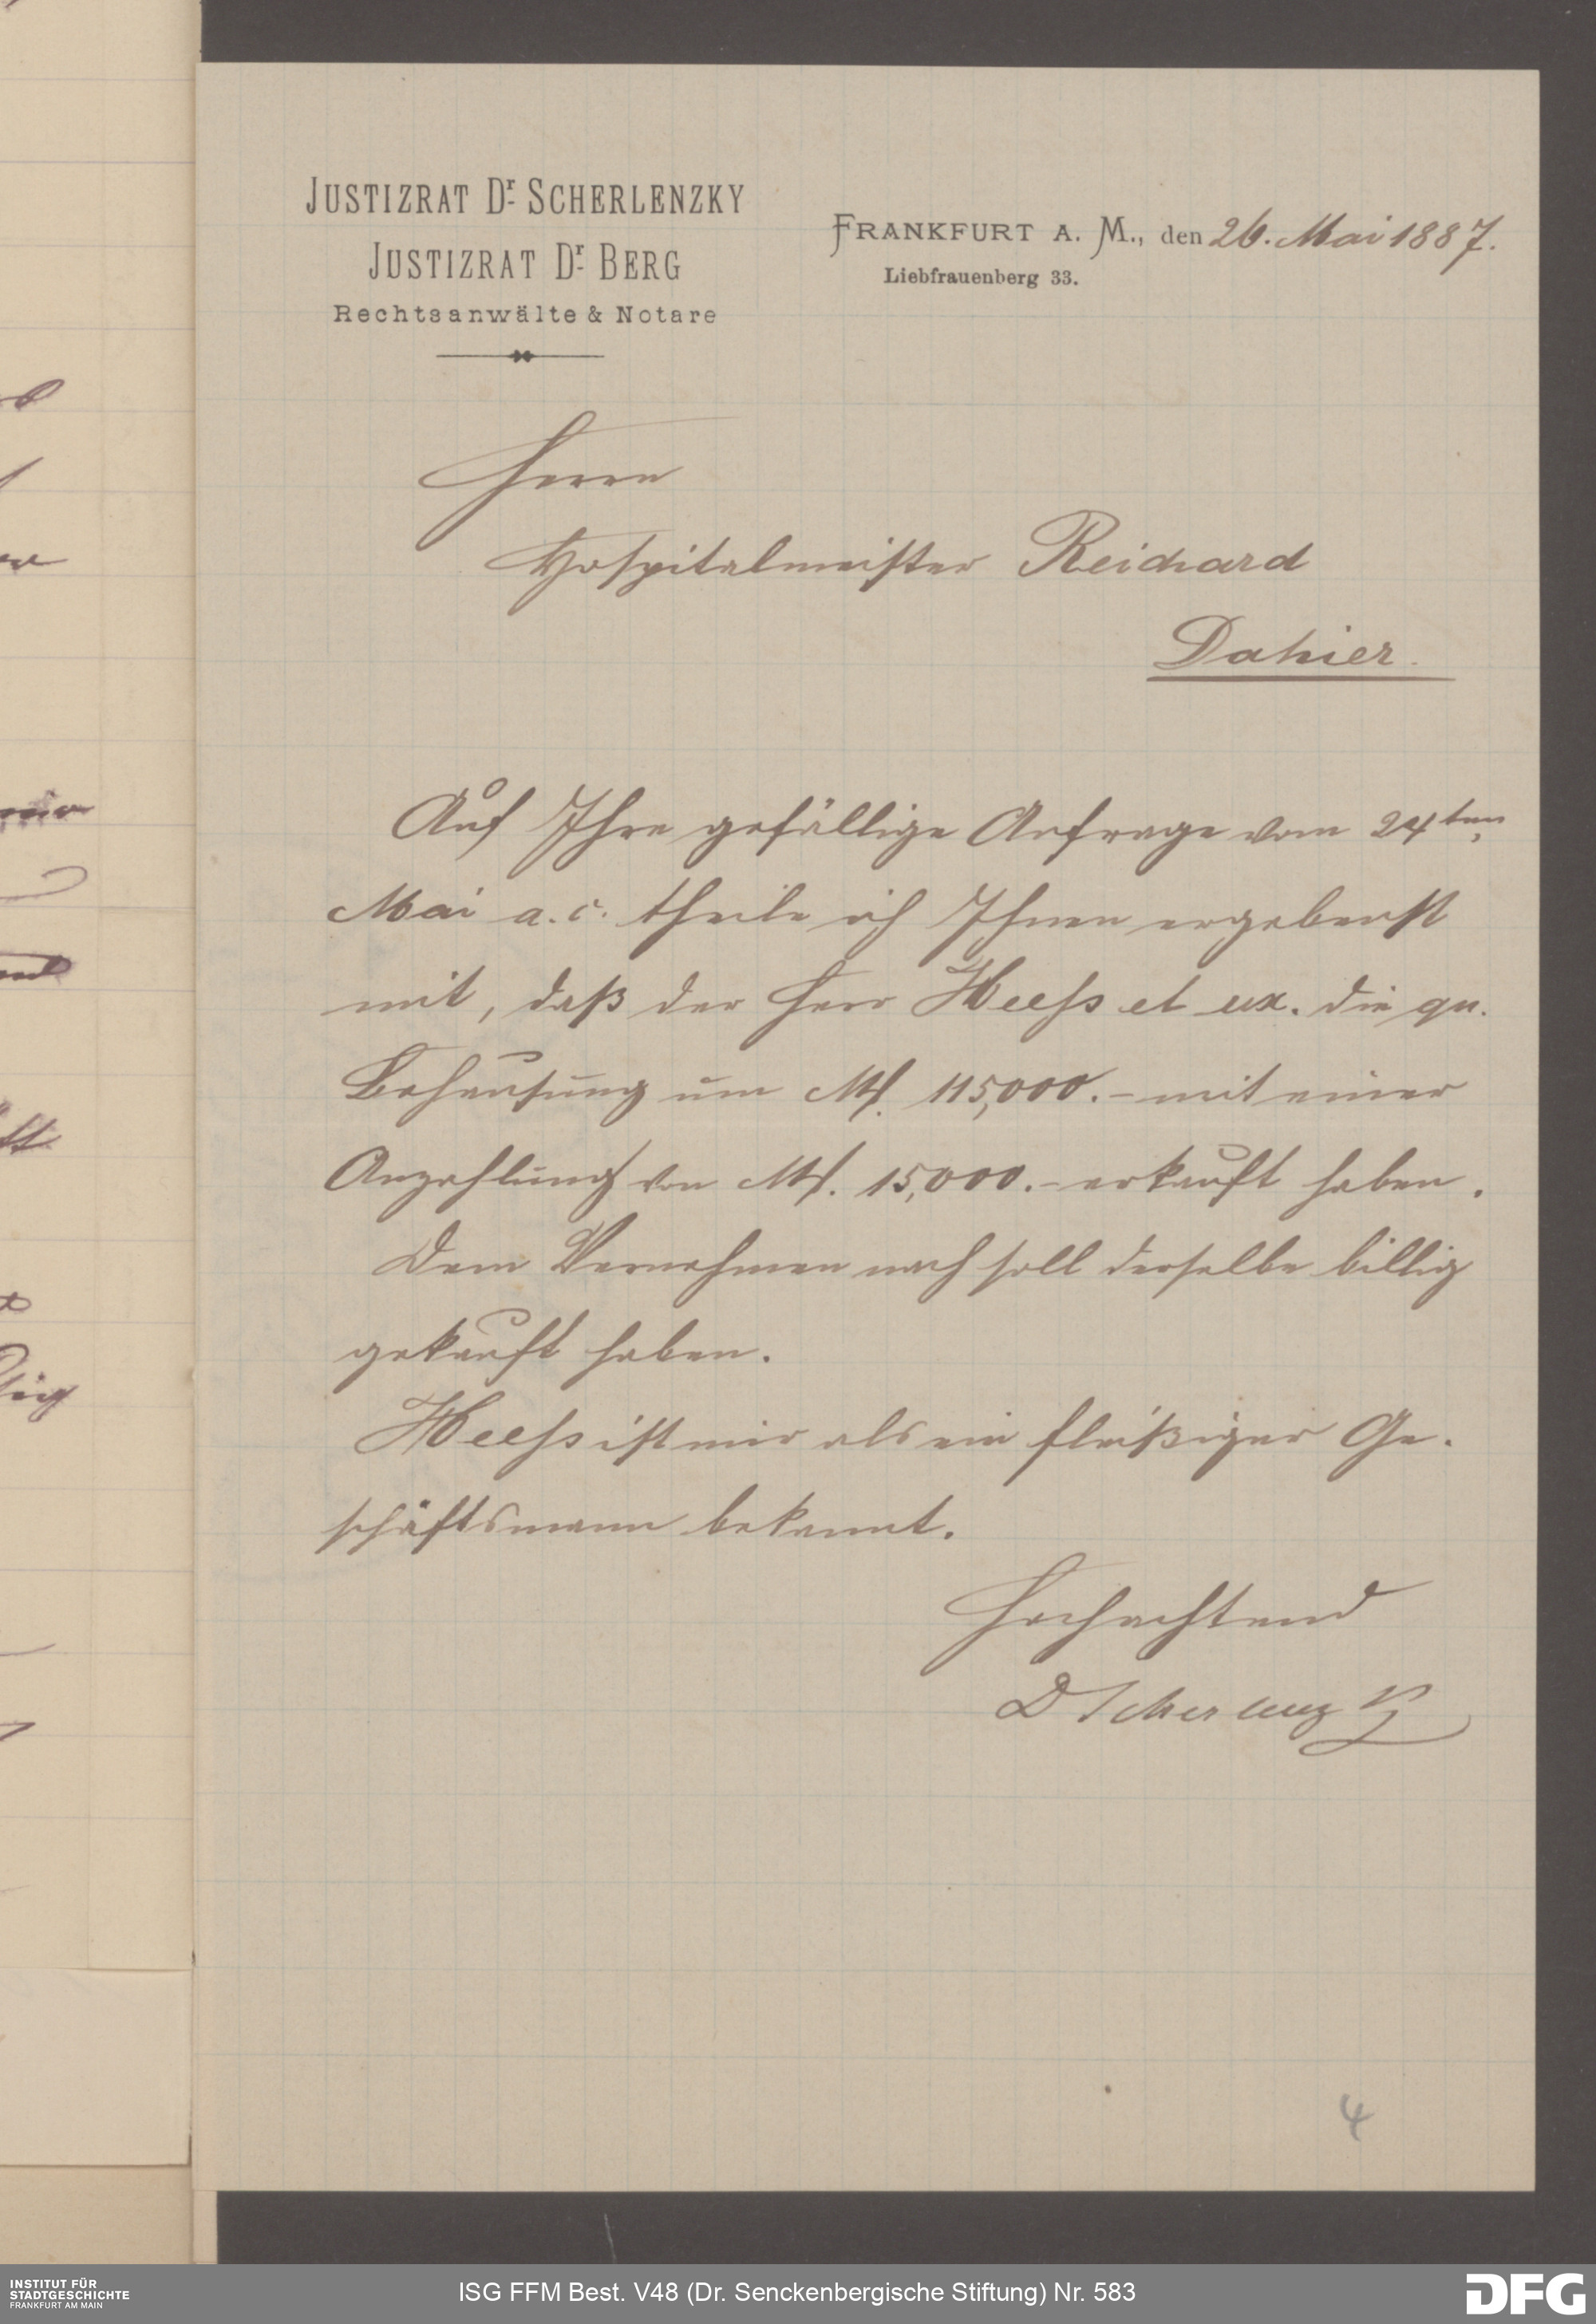 JUSTIZRAT Dr. SCHERLENZKY
JUSTIZRAT Dr. BERG
Rechtsanwälte & Notare
FRANKFURT A. M., den 26. Mai 1887.
Liebfrauenberg 33.
Herrn
Hospitalmeister Reichard
Dahier.
Auf Ihre gefällige Anfrage vom 24ten
Mai a. c. theile ich Ihnen ergebenst
mit, daß der Herr Heess et ux. die qu.
Behausung um M. 115,000.- mit einer
Anzahlung von M. 15,000.- erkauft haben.
Dem Vernehmen nach soll derselbe billig
gekauft haben.
Heess ist mir als ein fleißiger Ge-
schäftsmann bekannt.
Hochachtend
D Scherlenzky
4
INSTITUT FÜR
STADTGESCHICHTE
FRANKFURT AM MAIN
ISG FFM Best. V48 (Dr. Senckenbergische Stiftung) Nr. 583
DFG